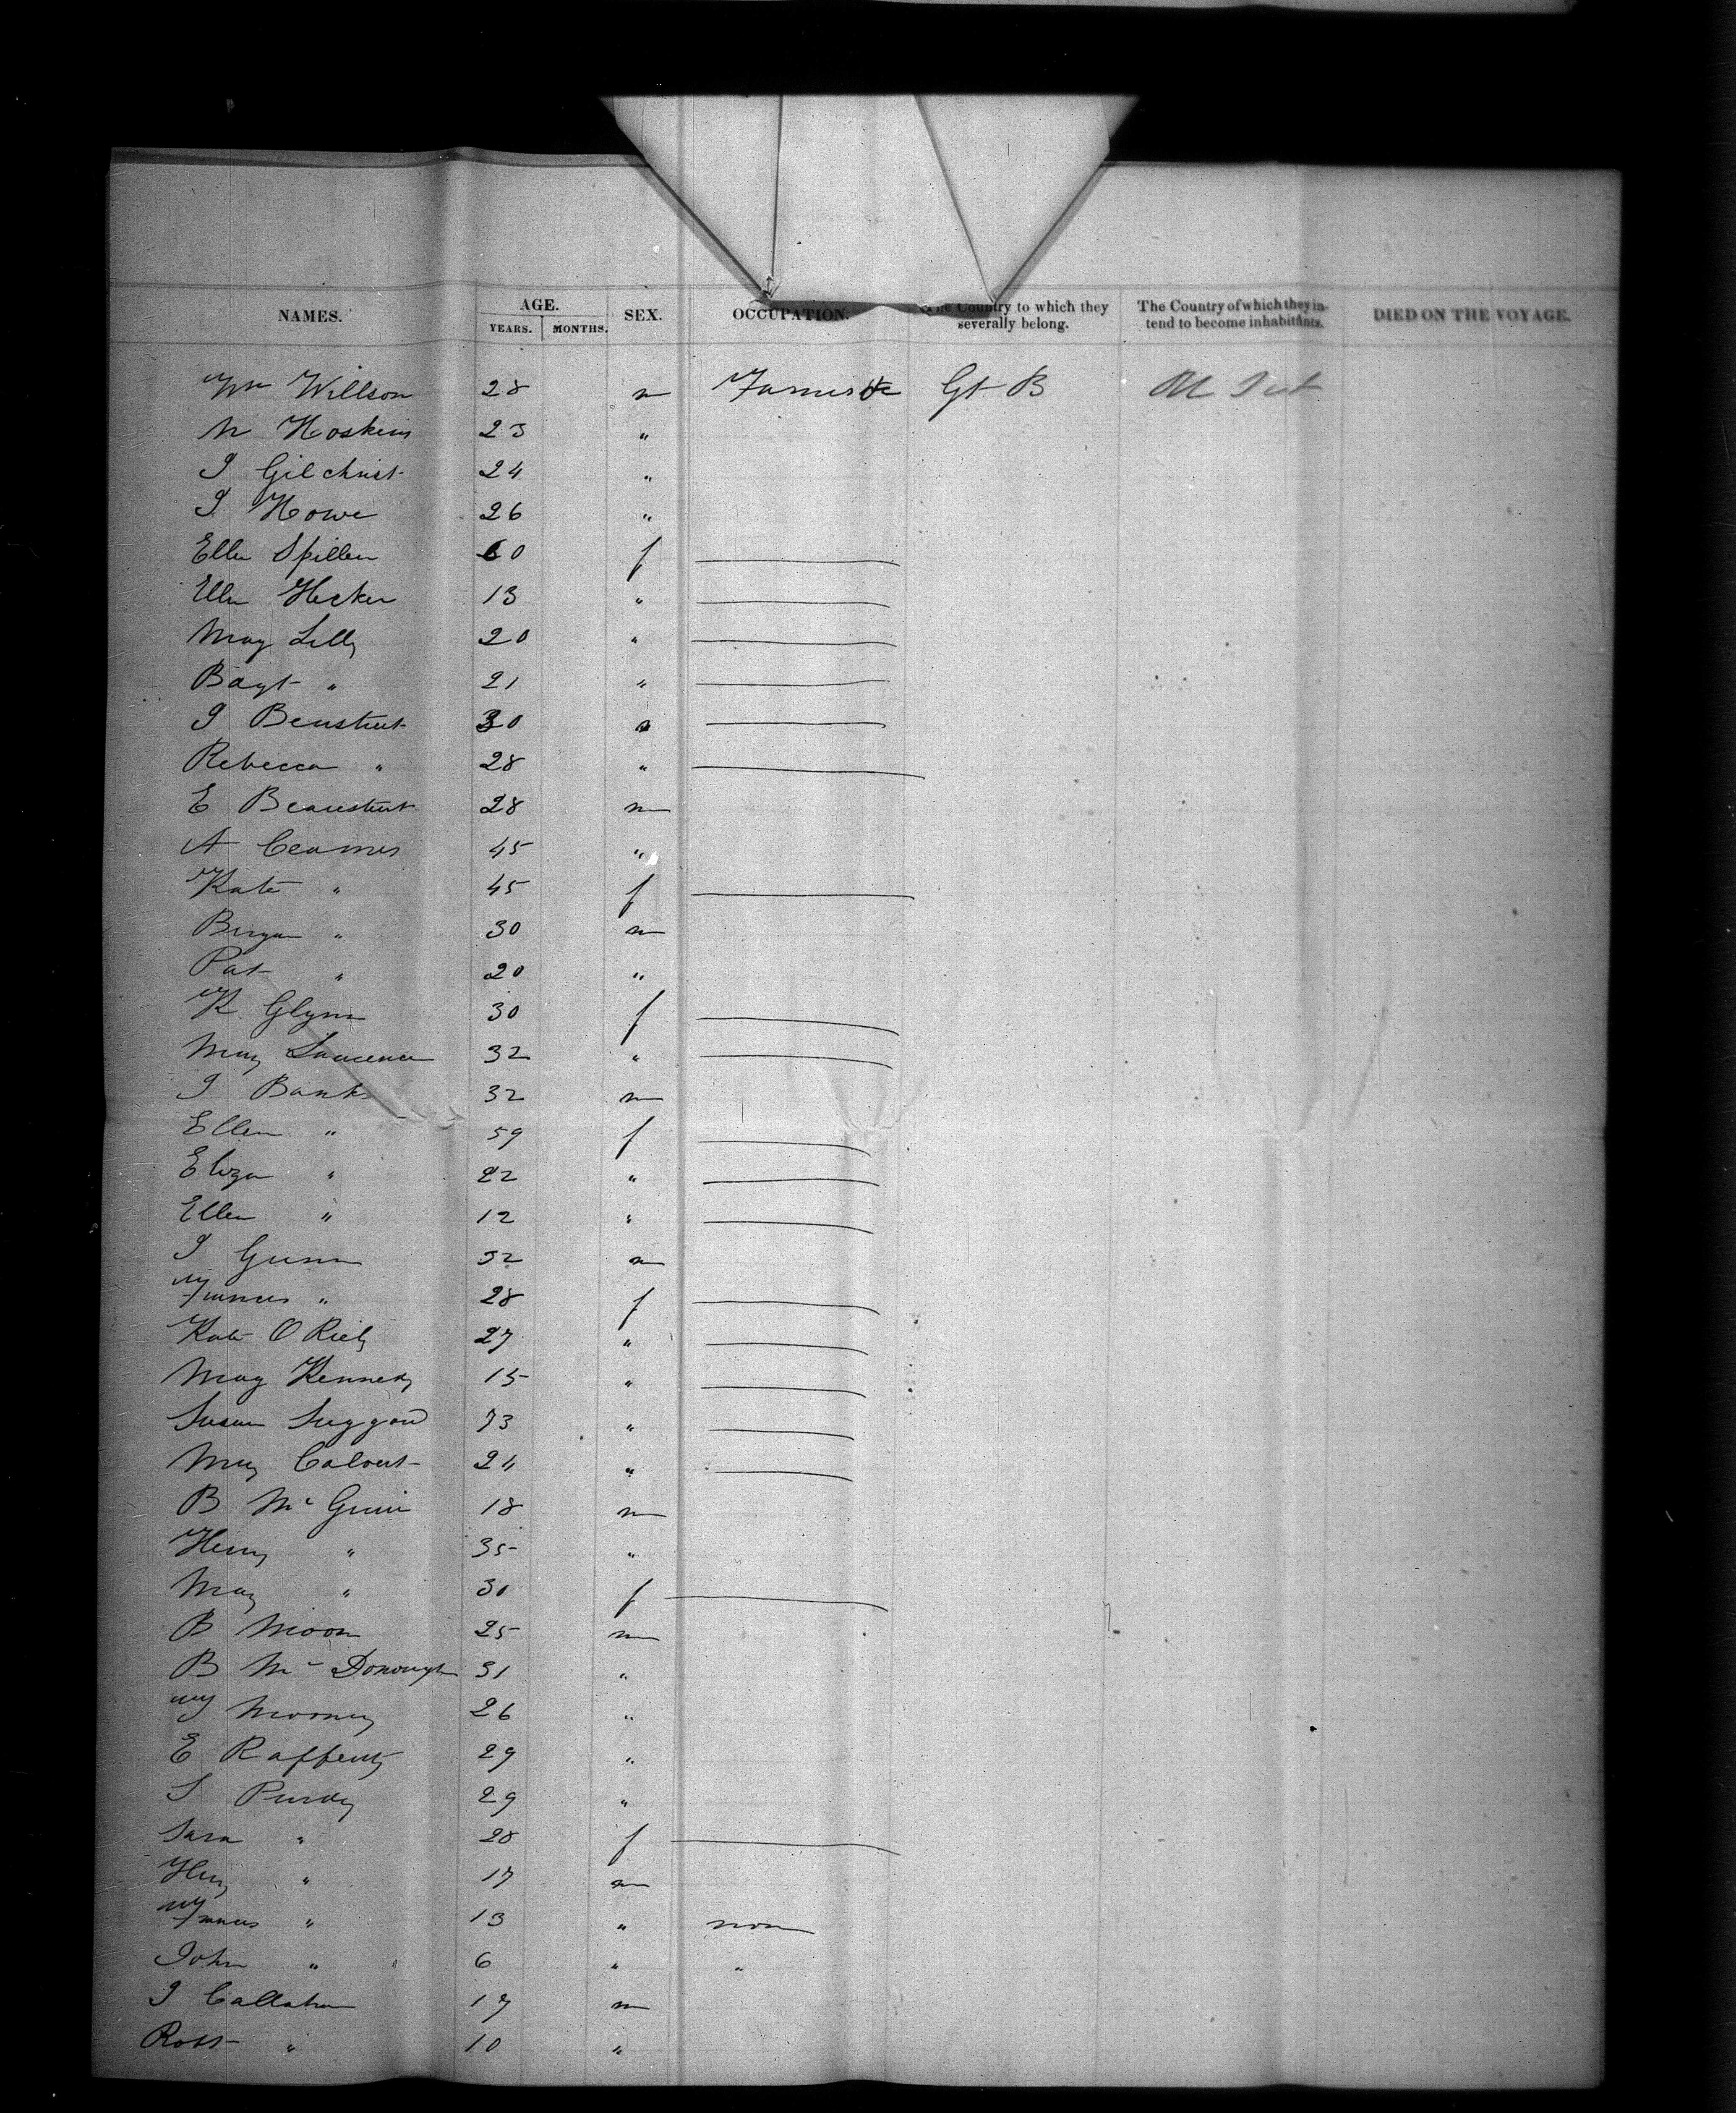 NAMES. AGE. YEARS. MONTHS. SEX. OCCUPATION. The Country to which they severally belong. The Country of which they intend to become inhabitants. DIED ON THE VOYAGE.
Wm Willson 28 m Gt B
N Hoskins 23 "
J Gilchrist 24 "
J Howe 26 "
Ellen Spillen 60 f
Ellen Hecker 13 "
May Lilly 20 "
" 21 "
J 30
Rebecca " 28 "
E 28 m
A 45 "
Kate " 45 f
" 30 m
Pat " 20 "
K Glynn 30 f
Mary Lawrence 32 "
J Banks 32 m
Ellen " 59 f
Eliza " 22 "
Ellen " 12 "
J Gunn 32 m
Frances " 28 f
Kate O Riely 27 "
May Kennedy 15 "
Susan 73 "
Mary Calvert 24 "
B Mc 18 m
Henry " 35 "
May " 30 f
B Moon 25 m
B Mc Donough 31 "
Mooney 26 "
E Rafferty 29 "
S Purdy 29 "
Sara " 28 f
Hen " 17 m
Frances " 13 " non
John " 6 " "
J Callahan 17 m
Robt " 10 "